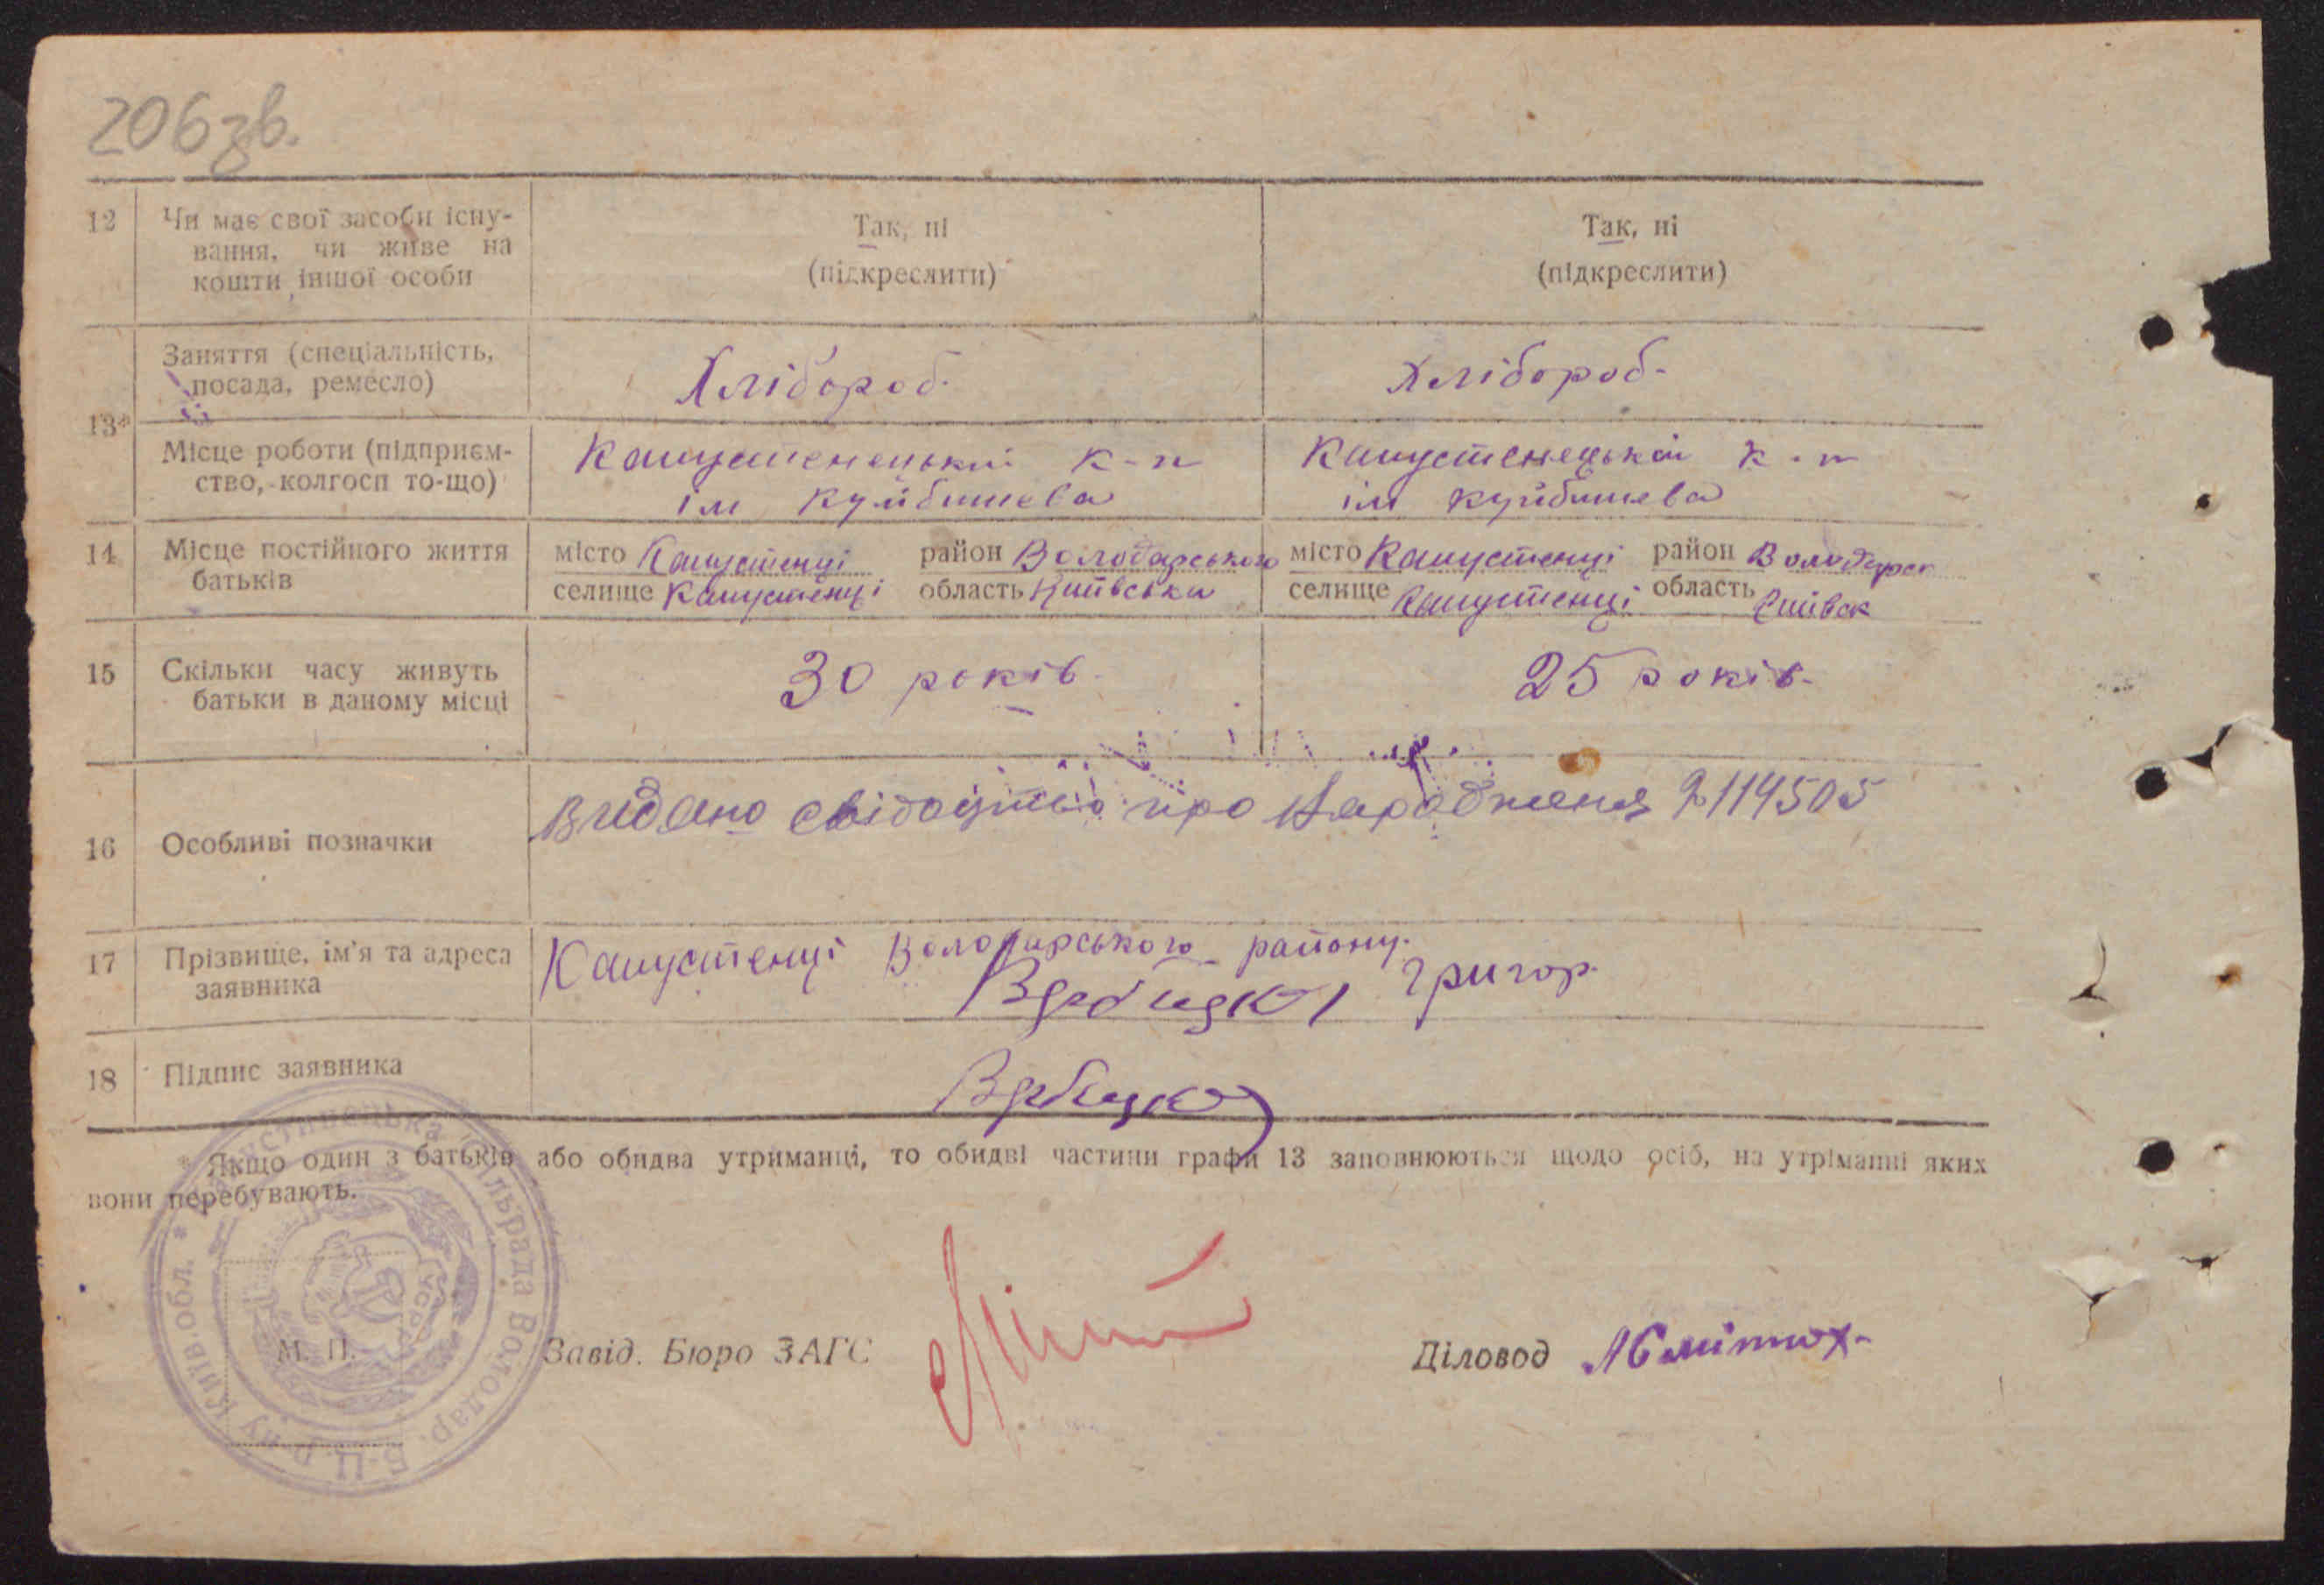 206зв.
12 Чи має свої засоби існу-
вання, чи живе на
кошти іншої особи
Так, ні
(підкреслити)
Так, ні
(підкреслити)
13*
Заняття (спеціальність,
посада, ремесло)
Хлібороб.
Хлібороб-
Місце роботи (підприєм-
ство, колгосп то-що)
Капустенецький к-п
ім Куйбишева
Капустенецькій к-п
ім Куйбишева
14 Місце постійного життя
батьків
місто Капустенці район Володарського
селище Капустенці область Київська
місто Капустенці район Володарск
селище Капустенці область Київск
15 Скільки часу живуть
батьки в даному місці
30 років.
25 років.
16 Особливі позначки
Видано свідоцтво про народження 2114505
17 Прізвище, ім'я та адреса
заявника
Капустенці Володарського району.
Григор
18 Підпис заявника
* Якщо один з батьків або обидва утриманці, то обидві частини графи 13 заповнюються щодо осіб, на утріманні яких
вони перебувають.
М. П.
Завід. Бюро ЗАГС
Діловод
Капустинецька сільрада Володар. р-ну Київ. обл. *
УСРР